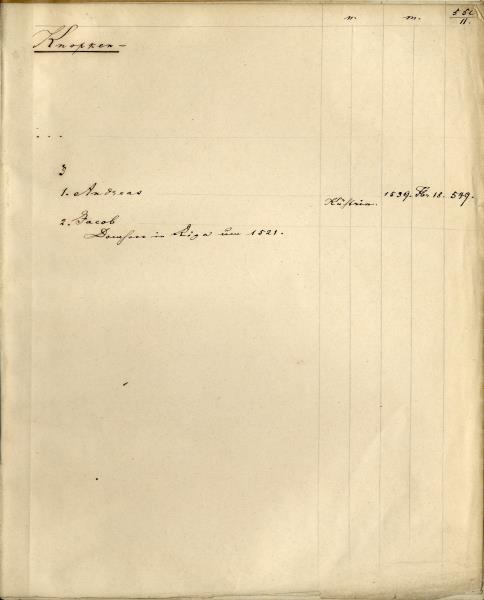 n. m.
II.
Knopken
...
3
1. Andreas
Küstrin. 1539. Fbr. 18. 549.
2. Jacob
Domherr in Riga um 1521.